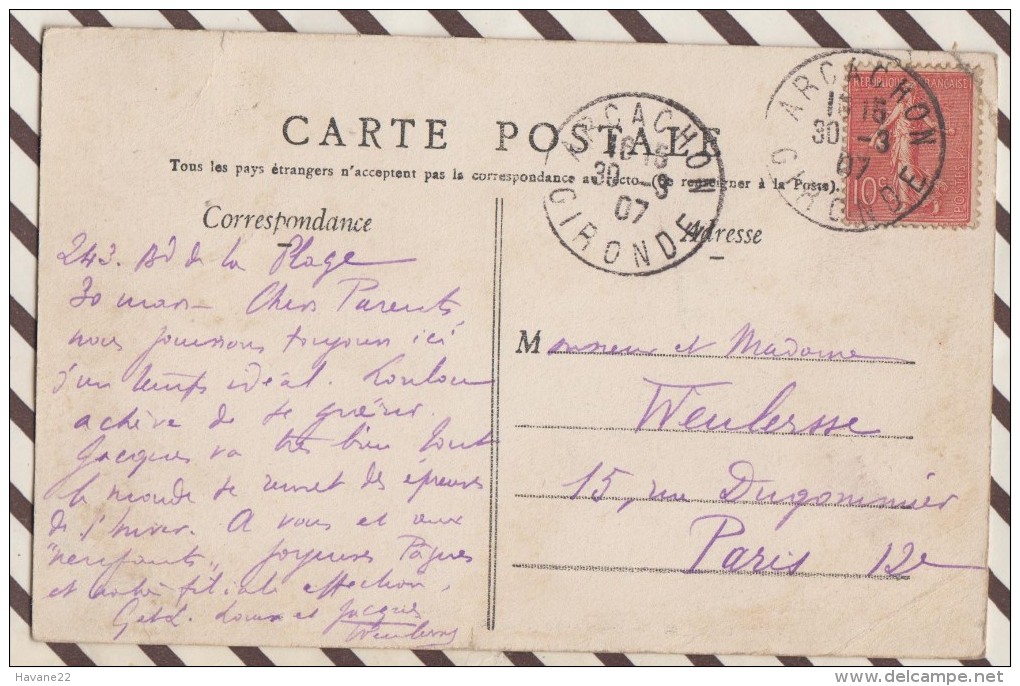 CARTE POSTALE
Tous les pays étrangers n'acceptent pas la correspondance au recto (Se renseigner à la Poste).
Correspondance
Adresse
ARCACHON
16 15
30 -3
07
GIRONDE
ARCACHON
15
30 -3
07
GIRONDE
REPUBLIQUE FRANÇAISE
10c
POSTES
243. Bd de la Plage
30 mars Chers Parents
nous jouissons toujours ici
d'un temps idéal. Loulou
achève de se guérir.
Jacques va très bien tout
le monde se remet des épreuves
de l'hiver. A vous et aux
joyeuses Pâques
et notre filiale affection.
G et L. Louis et Jacques
Weulersse
Monsieur et Madame
Weulersse
15, rue Dugommier
Paris 12e
Havane22
www.delcampe.net